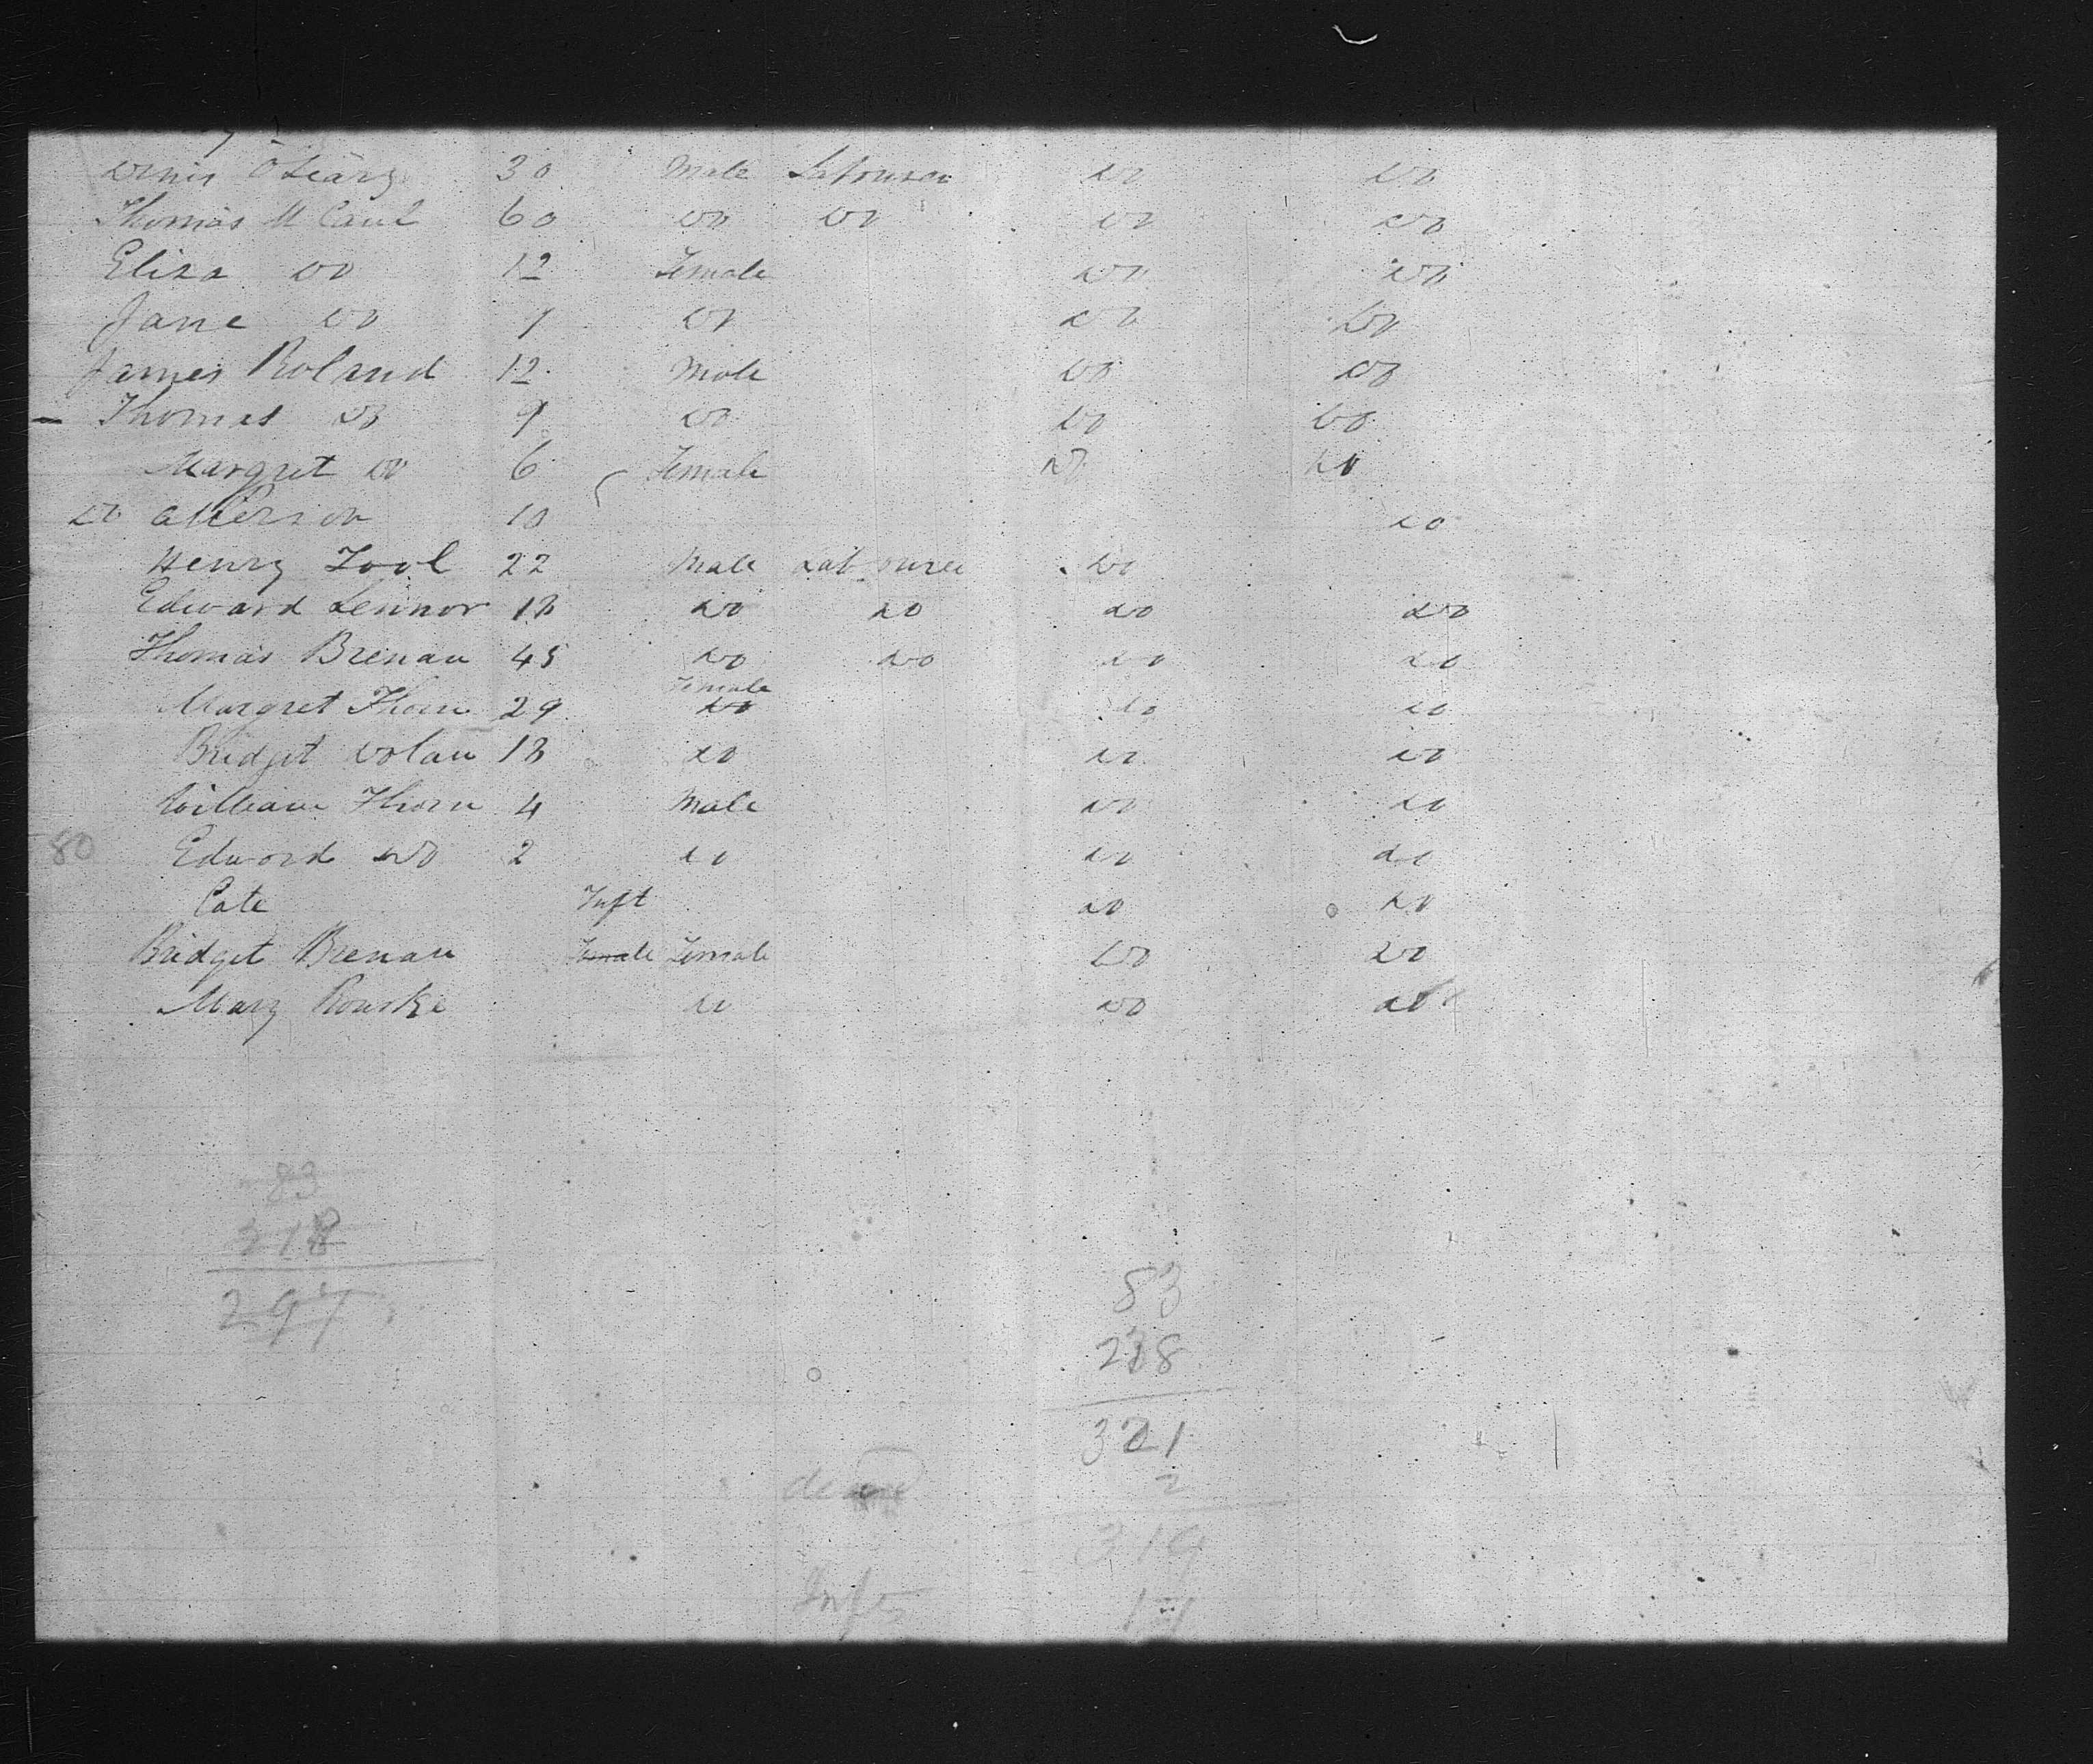 Denis O'Leary 30 Male Labourer Do Do
Thomas McCaul 60 Do Do Do Do
Eliza Do 12 Female Do Do
Jane Do 9 Do Do Do
James Boland 12 Male Do Do
Thomas Do 9 Do Do Do
Margret Do 6 Female Do Do
Do 10 Do
Henry Tool 22 Male Labourer Do
Edward Lennor 18 Do Do Do Do
Thomas Brenan 45 Do Do Do Do
Female
Margret Thorn 29 Do Do Do
Bridget Dolan 18 Do Do Do
William Thorn 4 Male Do Do
80 Edword Do 2 Do Do Do
Cate Inft Do Do
Bridget Brenan Female Female Do Do
Mary Rourke Do Do Do
83
318
297
83
238
321
2
319
Infts